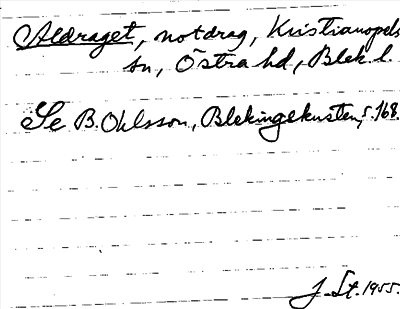 Aldraget, notdrag, Kristianopels
sn, Östra hd, Blek. l.
Se B. Ohlsson, Blekingekusten, s. 168.
J. St. 1955.